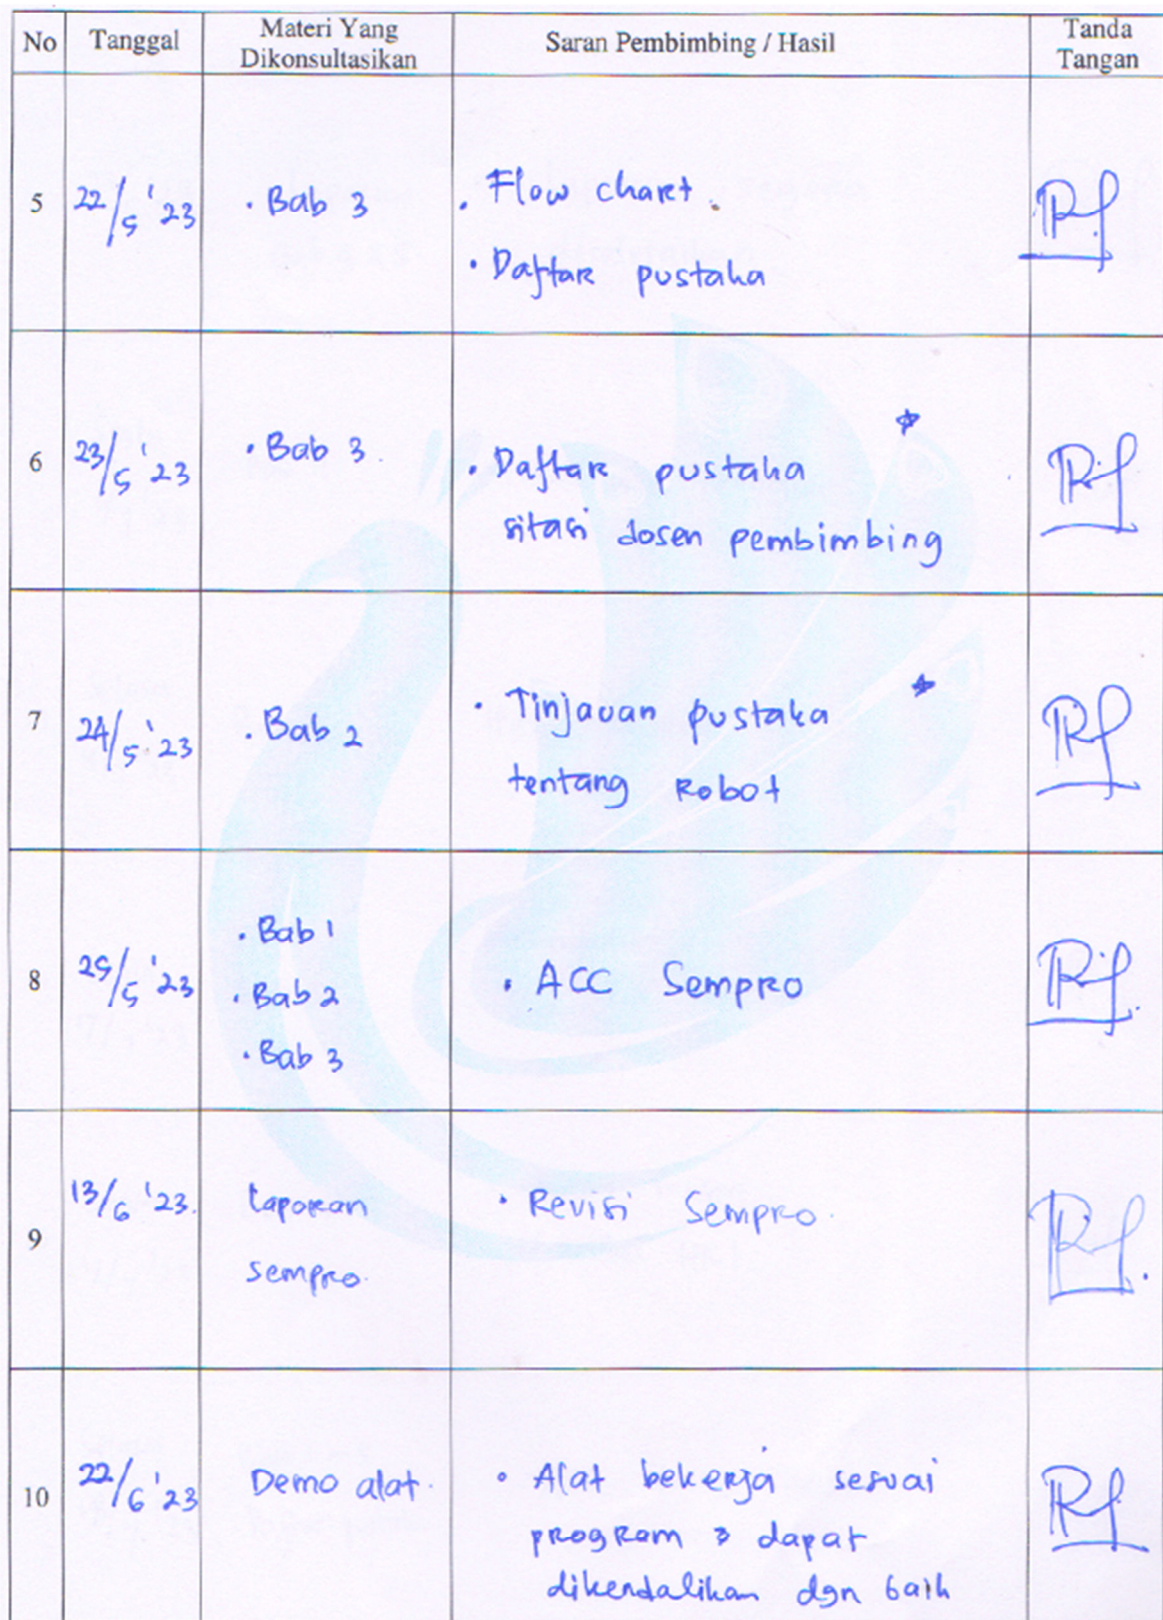 No Tanggal Materi Yang Dikonsultasikan Saran Pembimbing / Hasil Tanda Tangan
5 22/5 '23 • Bab 3 • Flow chart.
• Daftar pustaka
6 23/5 '23 • Bab 3. • Daftar pustaka
sitasi dosen pembimbing
7 24/5 '23 • Bab 2 • Tinjauan pustaka
tentang Robot
8 25/5 '23 • Bab 1
• Bab 2 • ACC Sempro
• Bab 3
9 13/6 '23. Laporan • Revisi Sempro.
sempro.
10 22/6 '23 Demo alat. • Alat bekerja sesuai
program & dapat
dikendalikan dgn baik